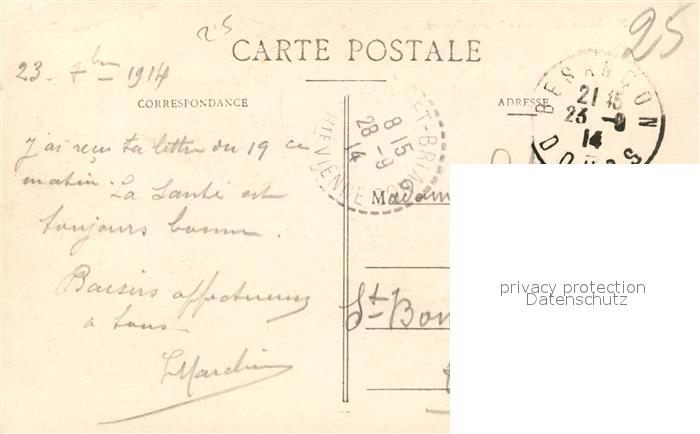 25
25
CARTE POSTALE
23. 7bre 1914
CORRESPONDANCE
ADRESSE
BESANÇON
21 15
23 -9
14
DOUBS
ET-BRIA
8 15
28 -9
14
HTE VIENNE
J'ai reçu ta lettre du 19 ce
matin. La Santé est
toujours bonne.
Baisers affectueux
a tous
Madam
St Bon
privacy protection
Datenschutz